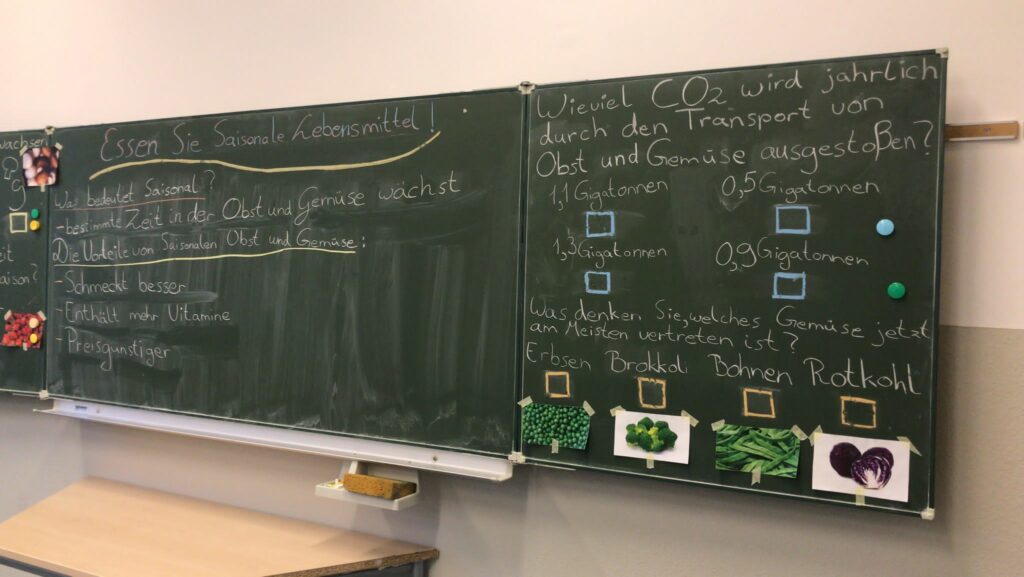 wachsen
?
g
eit
aison?
Essen Sie Saisonale Lebensmittel!
Was bedeutet Saisonal?
- bestimmte Zeit in der Obst und Gemüse wächst
Die Vorteile von Saisonalen Obst und Gemüse:
- Schmeckt besser
- Enthält mehr Vitamine
- Preisgünstiger
Wieviel CO2 wird jahrlich
durch den Transport von
Obst und Gemüse ausgestoßen?
1,1 Gigatonnen 0,5 Gigatonnen
1,3 Gigatonnen 0,9 Gigatonnen
Was denken Sie, welches Gemüse jetzt
am Meisten vertreten ist?
Erbsen Brokkoli Bohnen Rotkohl